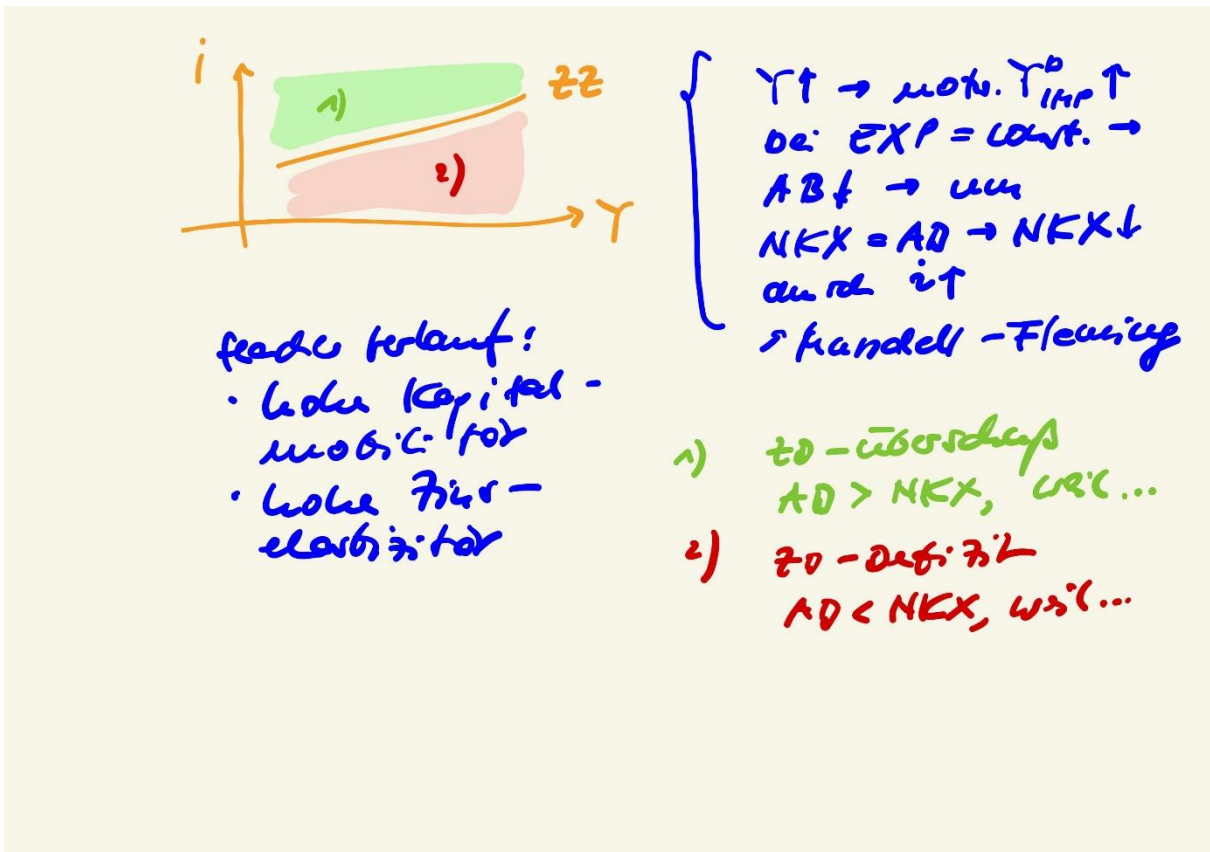 i
1)
ZZ
2)
Y
Y↑ → notw. Y^D_IMP ↑
bei EXP = const. →
AB↓ → um
NKX = AB → NKX↓
durch i↑
↗ Mundell-Fleming
flacher Verlauf:
· hohe Kapital-
mobilität
· hohe Zins-
elastizität
1) ZB-Überschuß
AB > NKX, weil...
2) ZB-Defizit
AB < NKX, weil...